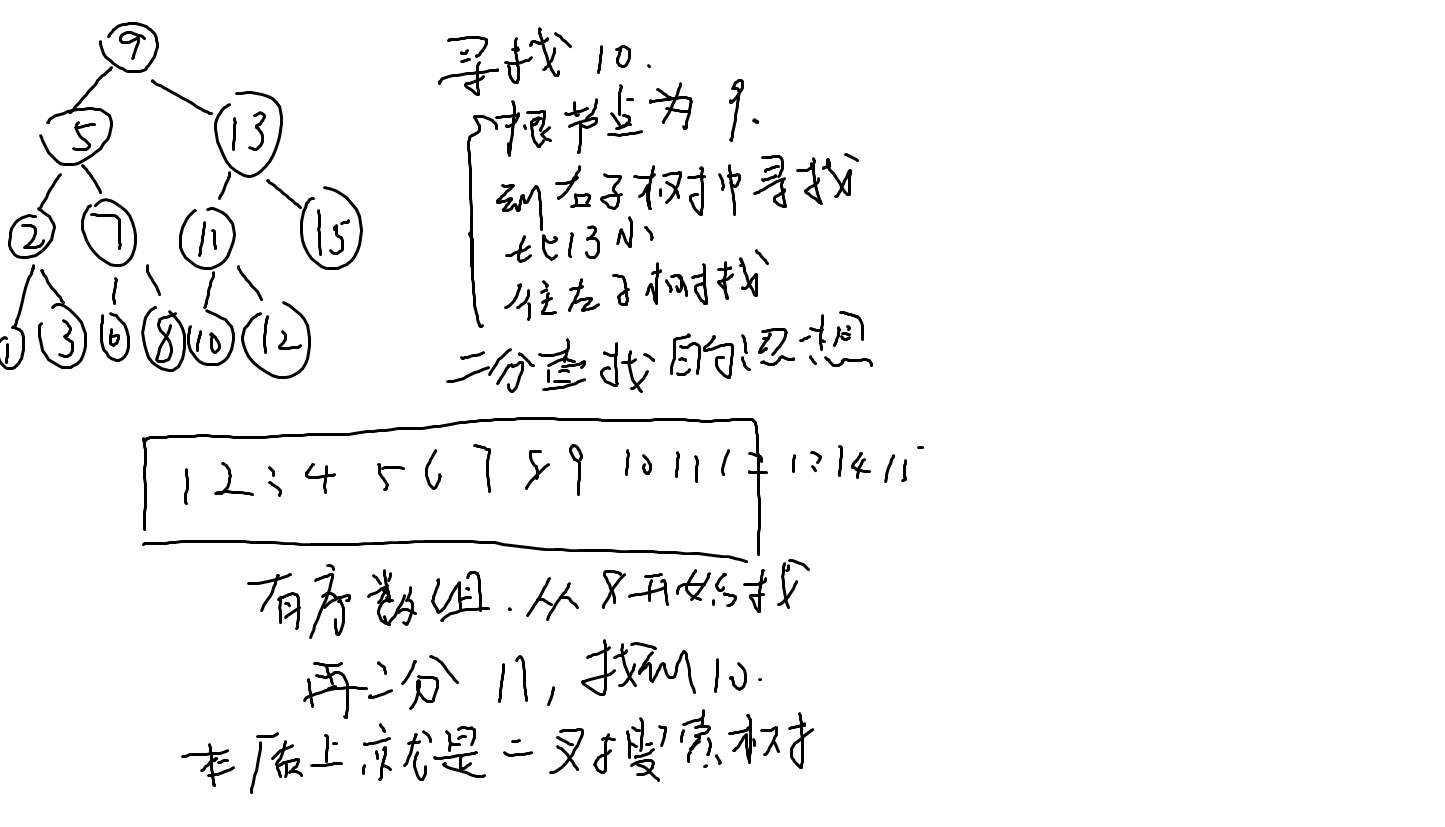 9
5 13
2 7 11 15
1 3 6 8 10 12
寻找 10.
根节点为 9.
到右子树中寻找
比13小
往左子树找
二分查找的思想
1 2 3 4 5 6 7 8 9 10 11 12 13 14 15
有序数组.从8开始找
再二分 11, 找到10.
本质上就是二叉搜索树